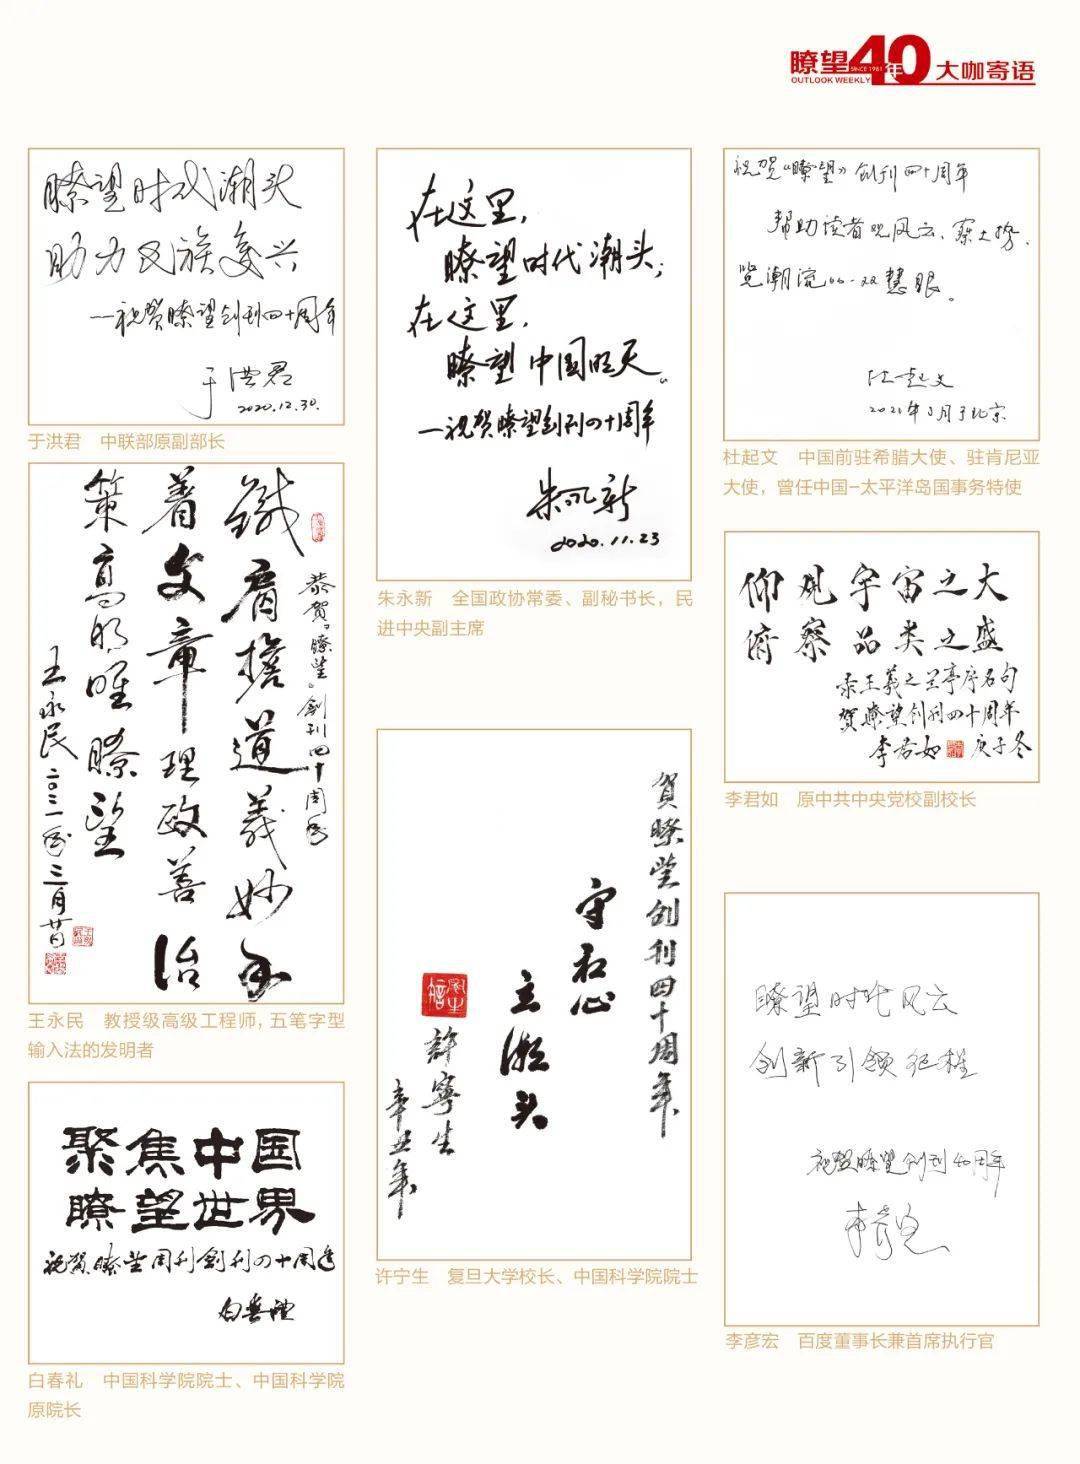 瞭望40年
SINCE 1981
OUTLOOK WEEKLY
大咖寄语
瞭望时代潮头
助力民族复兴
一祝贺瞭望创刊四十周年
于洪君
2020.12.30.
于洪君 中联部原副部长
鐵肩擔道義妙手
著文章理政善治
策高明唯瞭望
恭賀《瞭望》創刊四十周年
王永民二〇二一年三月廿日
王永民 教授级高级工程师，五笔字型
输入法的发明者
聚焦中国
瞭望世界
祝贺瞭望周刊創刊四十周年
白春礼
白春礼 中国科学院院士、中国科学院
原院长
在这里，
瞭望时代潮头；
在这里，
瞭望中国明天。
一祝贺瞭望创刊四十周年
朱永新
2020.11.23
朱永新 全国政协常委、副秘书长，民
进中央副主席
賀瞭望创刊四十周年
守初心
立潮头
許寧生
辛丑年
许宁生 复旦大学校长、中国科学院院士
祝贺《瞭望》创刊四十周年
帮助读者观风云、察大势、
览潮流的一双慧眼。
杜起文
2021年3月于北京
杜起文 中国前驻希腊大使、驻肯尼亚
大使，曾任中国-太平洋岛国事务特使
仰观宇宙之大
俯察品类之盛
录王羲之兰亭序名句
贺瞭望创刊四十周年
李君如 庚子冬
李君如 原中共中央党校副校长
瞭望时代风云
创新引领征程
祝贺瞭望创刊40周年
李彦宏
李彦宏 百度董事长兼首席执行官